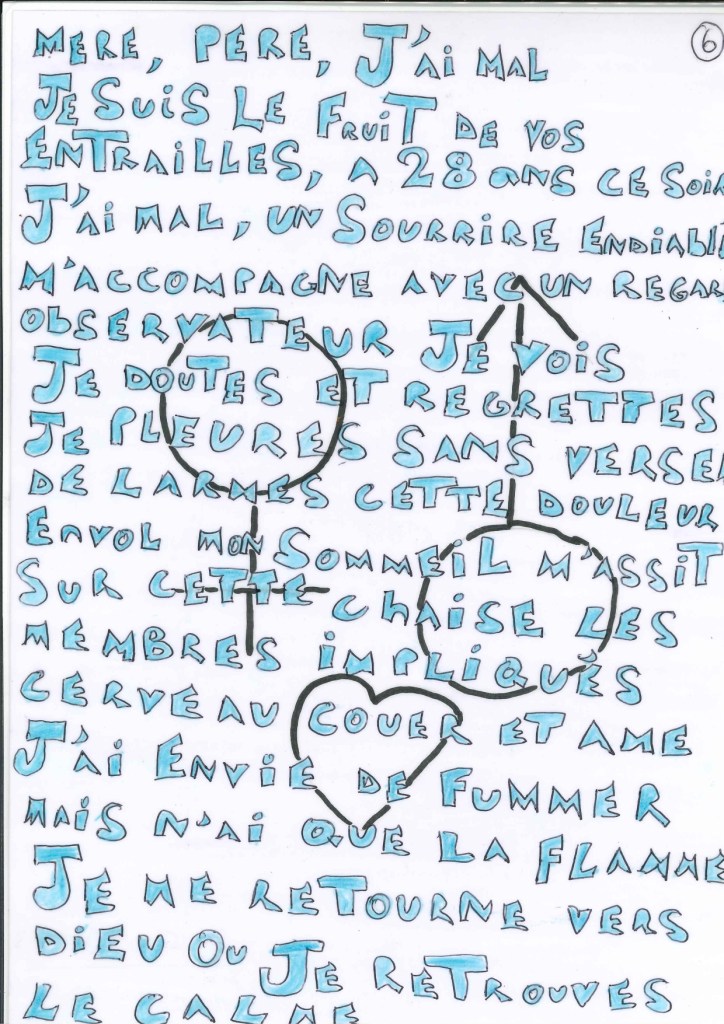 6
MERE, PERE, J'Ai MAL
JE SUiS LE FRUiT DE VOS
ENTRAiLLES, A 28 ANS CE SOiR
J'Ai MAL, UN SOURRiRE ENDiABL
M'ACCOMPAGNE AVEC UN REGAR
OBSERVATEUR JE VOiS
JE DOUTES ET REGRETTES
JE PLEURES SANS VERSER
DE LARMES CETTE DOULEUR
ENVOL MON SOMMEiL M'ASSiT
SUR CETTE CHAiSE LES
MEMBRES iMPLiQUÉS
CERVEAU COUER ET AME
J'Ai ENViE DE FUMMER
MAiS N'Ai QUE LA FLAMME
JE ME RETOURNE VERS
DiEU OU JE RETROUVES
LE CALME